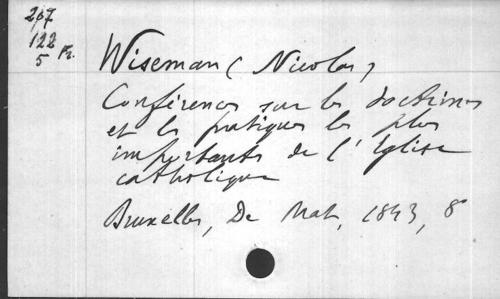 207
122
5 Fr.
Wiseman (Nicolas)
Conférences sur les doctrines
et les pratiques les plus
importantes de l'Eglise
catholique
Bruxelles, De Mat, 1843, 8°